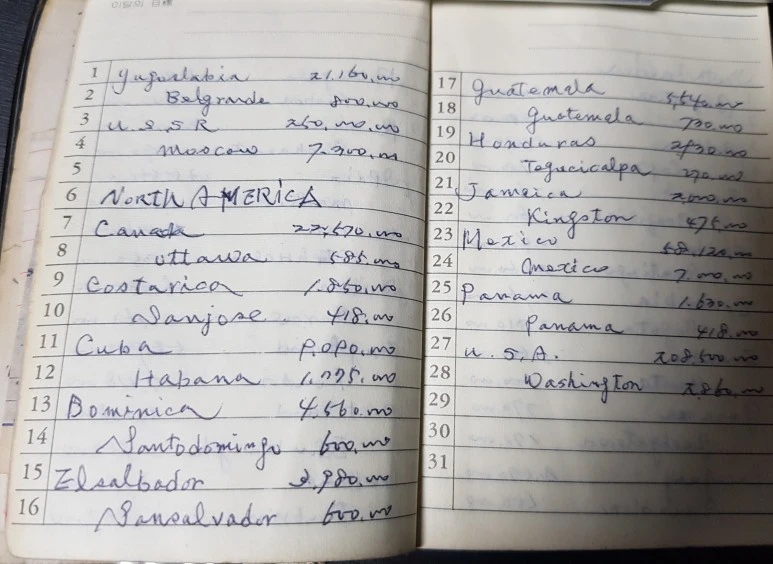 이달의 目標
1 Yugoslabia 21,160,00
2 Belgrande 800,00
3 U.S.S.R 250,00,00
4 Moscow 7,300,00
5
6 NORTH AMERICA
7 Canada 22,570,00
8 Ottawa 585,00
9 Costarica 1,850,00
10 Sanjose 418,00
11 Cuba
12 Habana
13 Bominica 4,560,00
14 Santodomingo 600,00
15 Elsalbador 3,980,00
16 Sansalvador 600,00
17 Guatemala 5,540,00
18 Guatemala 730,00
19 Honduras
20 Tegucicalpa 270,00
21 Jamaica 2,000,00
22 Kingston 475,00
23 Mexico 58,120,00
24 Mexico 7,00,00
25 Panama 1,630,00
26 Panama 418,00
27 U.S.A. 208,500,00
28 Washington 2,860,00
29
30
31